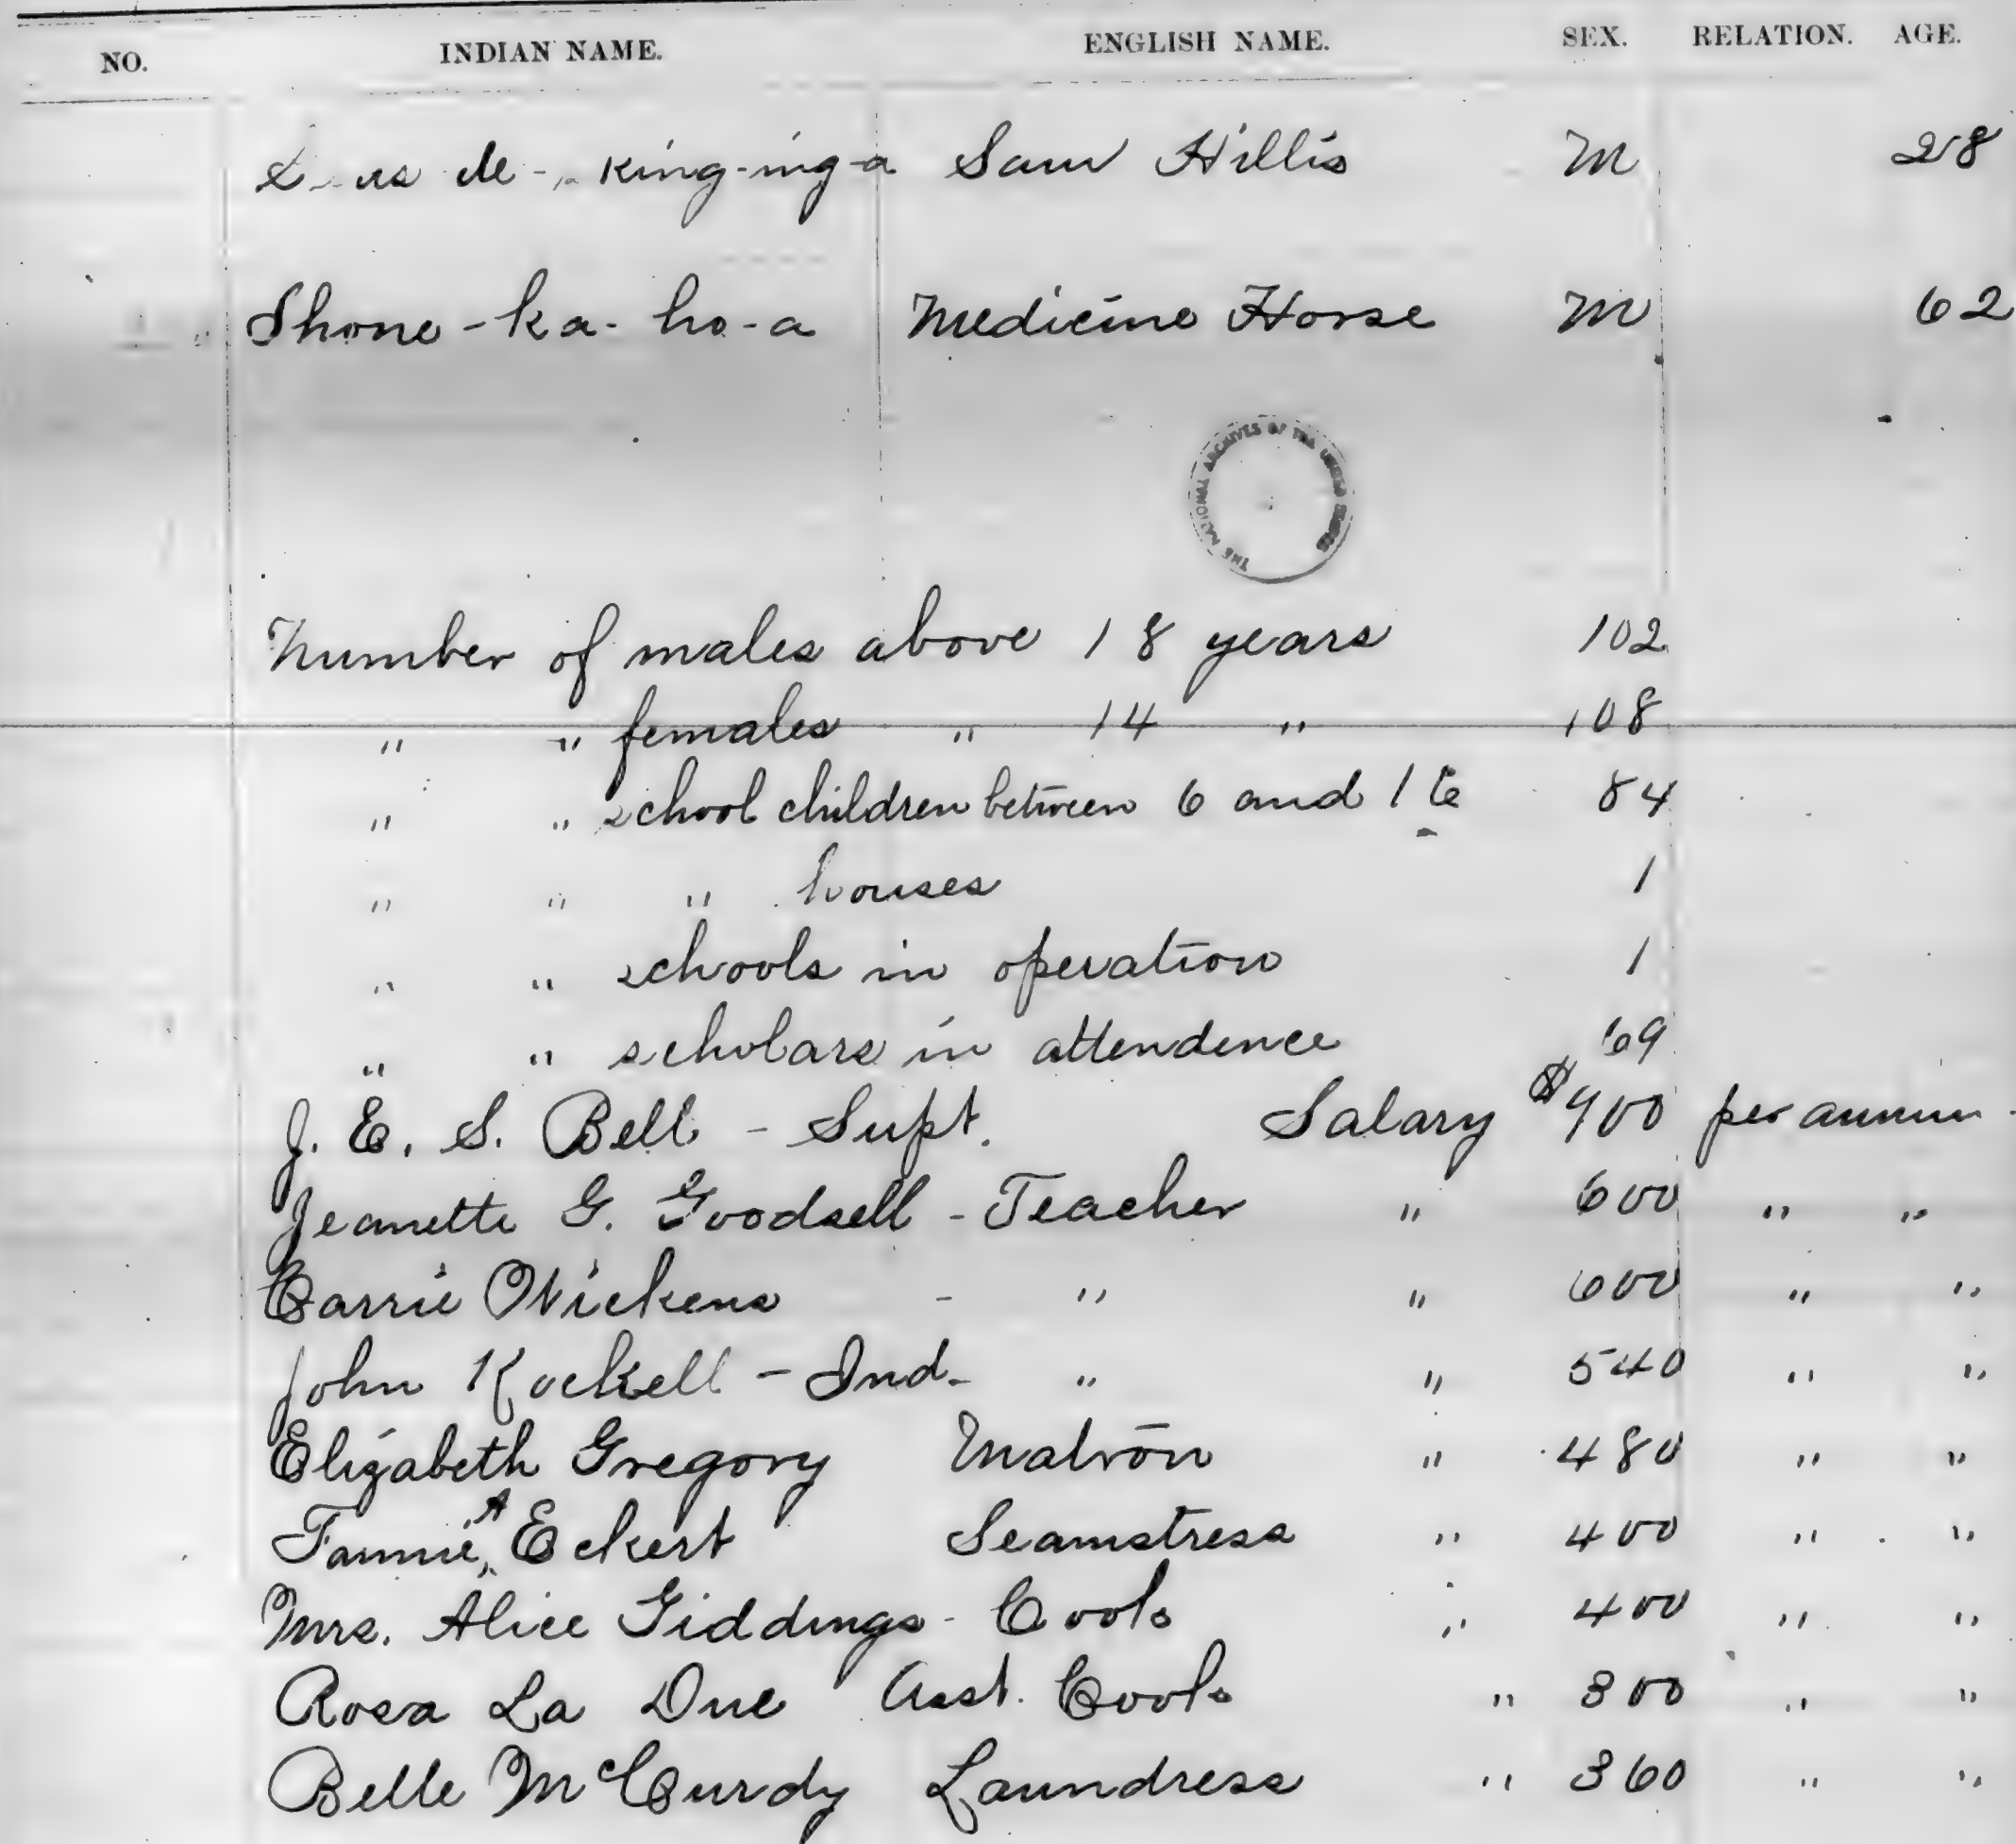 NO. INDIAN NAME. ENGLISH NAME. SEX. RELATION. AGE.
king-ing-a Sam Hillis M 28
Shone-ka-ho-a Medicine Horse M 62
THE NATIONAL ARCHIVES OF THE UNITED STATES
Number of males above 18 years 102
" " females " 14 " 108
" " school children between 6 and 16 84
" " " houses 1
" " schools in operation 1
" " scholars in attendence 69
J. E. S. Bell - Supt. Salary $900 per annum
Jeanette G. Goodsell - Teacher " 600 " "
Carrie Wickens - " " 600 " "
John Rockell - Ind. " " 540 " "
Elizabeth Gregory Matron " 480 " "
Fannie A Eckert Seamstress " 400 " "
Mrs. Alice Giddings - Cook " 400 " "
Rosa La Due Asst. Cook " 300 " "
Belle McCurdy Laundress " 360 " "